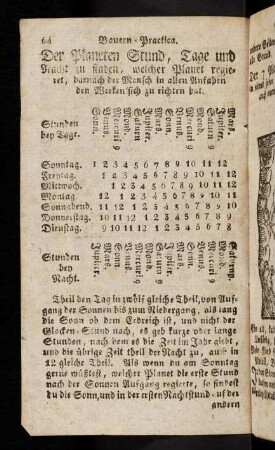 64 Bauern-Practica.
Der Planeten Stund, Tage und
Nacht zu finden, welcher Planet regie-
ret, darnach der Mensch in allen Anfahen
den Wercken sich zu richten hat.
Stunden
bey Tage.
Sonn.
Venus.
Mercuri 9
Mond.
Saturn 9
Jupiter.
Mars.
Sonn.
Venus.
Mercuri 9
Mond.
Saturn 9
Jupiter.
Mars.
Sonntag. 1 2 3 4 5 6 7 8 9 10 11 12
Freytag. 1 2 3 4 5 6 7 8 9 10 11 12
Mittwoch. 1 2 3 4 5 6 7 8 9 10 11 12
Montag. 12 1 2 3 4 5 6 7 8 9 10 11
Sonnabend. 11 12 1 2 3 4 5 6 7 8 9 10
Donnerstag. 10 11 12 1 2 3 4 5 6 7 8 9
Dienstag. 9 10 11 12 1 2 3 4 5 6 7 8
Stunden
bey
Nacht.
Jupiter.
Mars.
Sonn.
Venus.
Mercuri 9
Mond.
Theil den Tag in zwölf gleiche Theil, von Auf-
gang der Sonnen bis zum Niedergang, als lang
die Sonn ob dem Erdreich ist, und nicht der
Glocken-Stund nach, es geb kurze oder lange
Stunden, nach dem es die Zeit im Jahr giebt,
und die übrige Zeit theil der Nacht zu, auch in
12 gleiche Theil. Als wenn du am Sonntag
gerne wüßtest, welcher Planet die erste Stund
nach der Sonnen Aufgang regierte, so findest
du die Sonn, und in der ersten Nachtstund auf der
andern